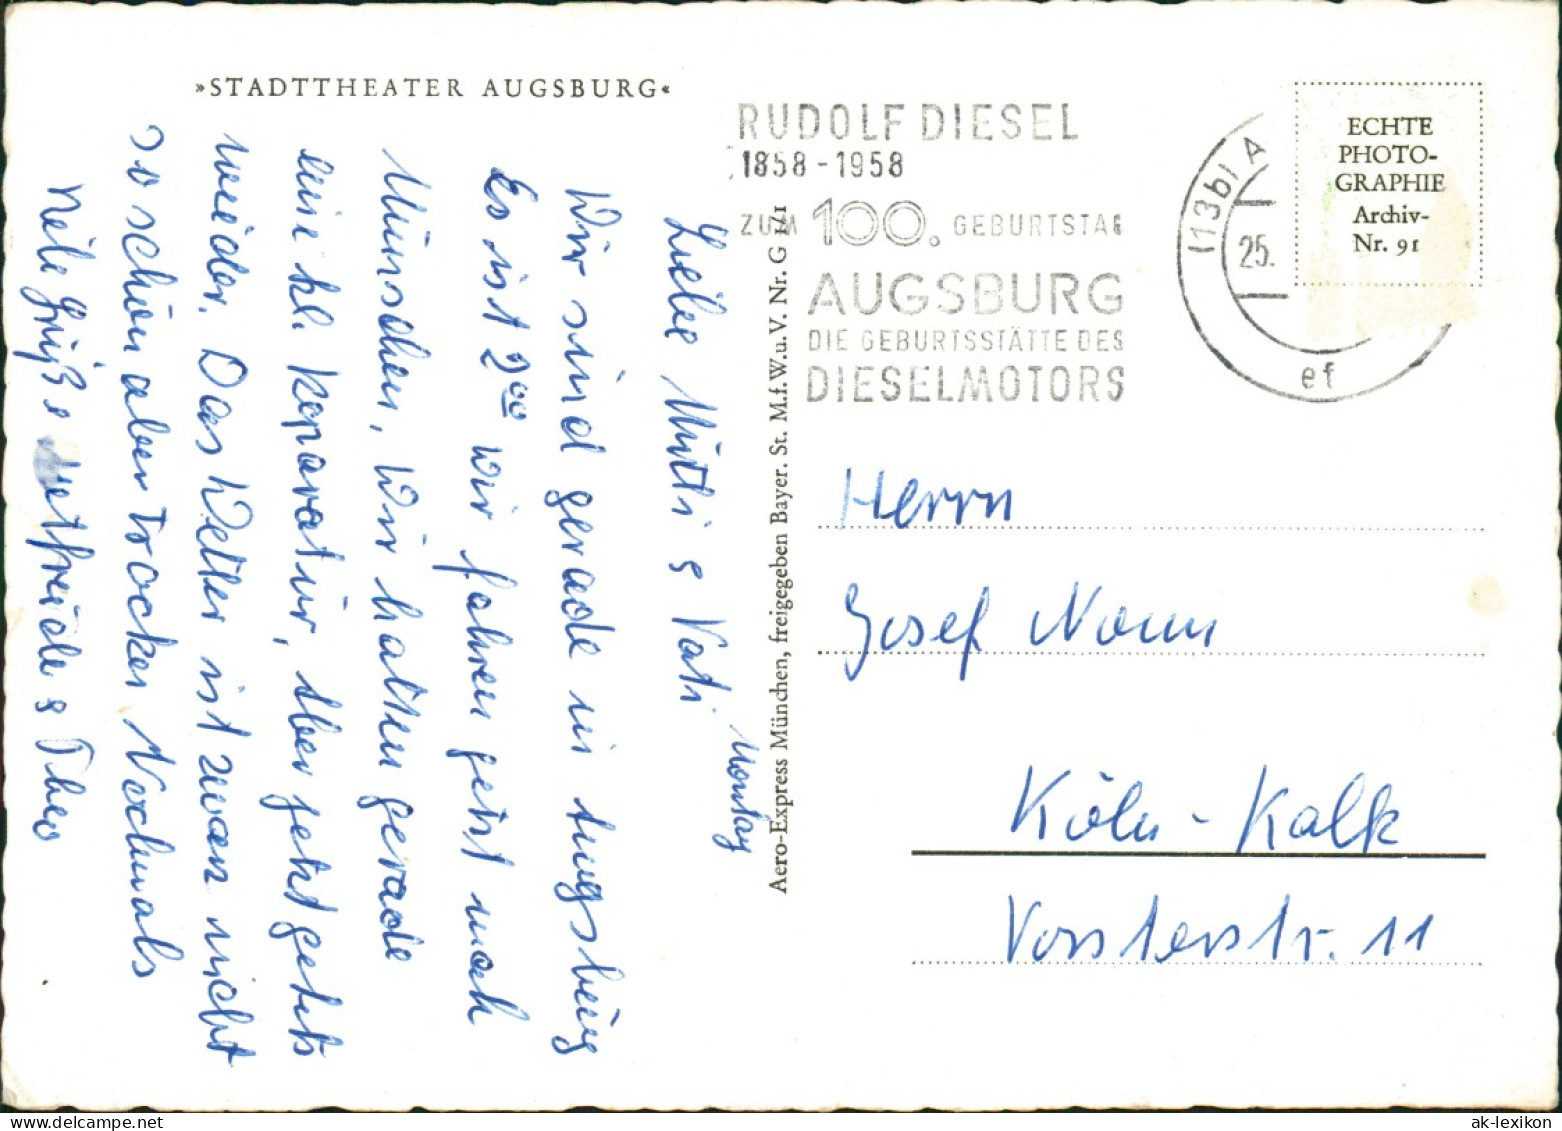 »STADTTHEATER AUGSBURG«
Montag
Liebe Mutti & Vati.
Wir sind gerade in Augsburg
Es ist 2⁰⁰ wir fahren jetzt nach
München, Wir halten gerade
eine kl. Reparatur, Aber jetzt gehts
wieder. Das Wetter ist zwar nicht
so schön aber Trocken. Nochmals
viele Grüße & Theo
Aero-Express München, freigegeben Bayer. St. M.f.W.u.V. Nr. G 1/1
RUDOLF DIESEL
1858 - 1958
ZUM 100. GEBURTSTAG
AUGSBURG
DIE GEBURTSSTÄTTE DES
DIESELMOTORS
(13b) A
25.
ef
ECHTE
PHOTO-
GRAPHIE
Archiv-
Nr. 91
Herrn
Josef
Köln - Kalk
Vorsterstr. 11
ak-lexikon